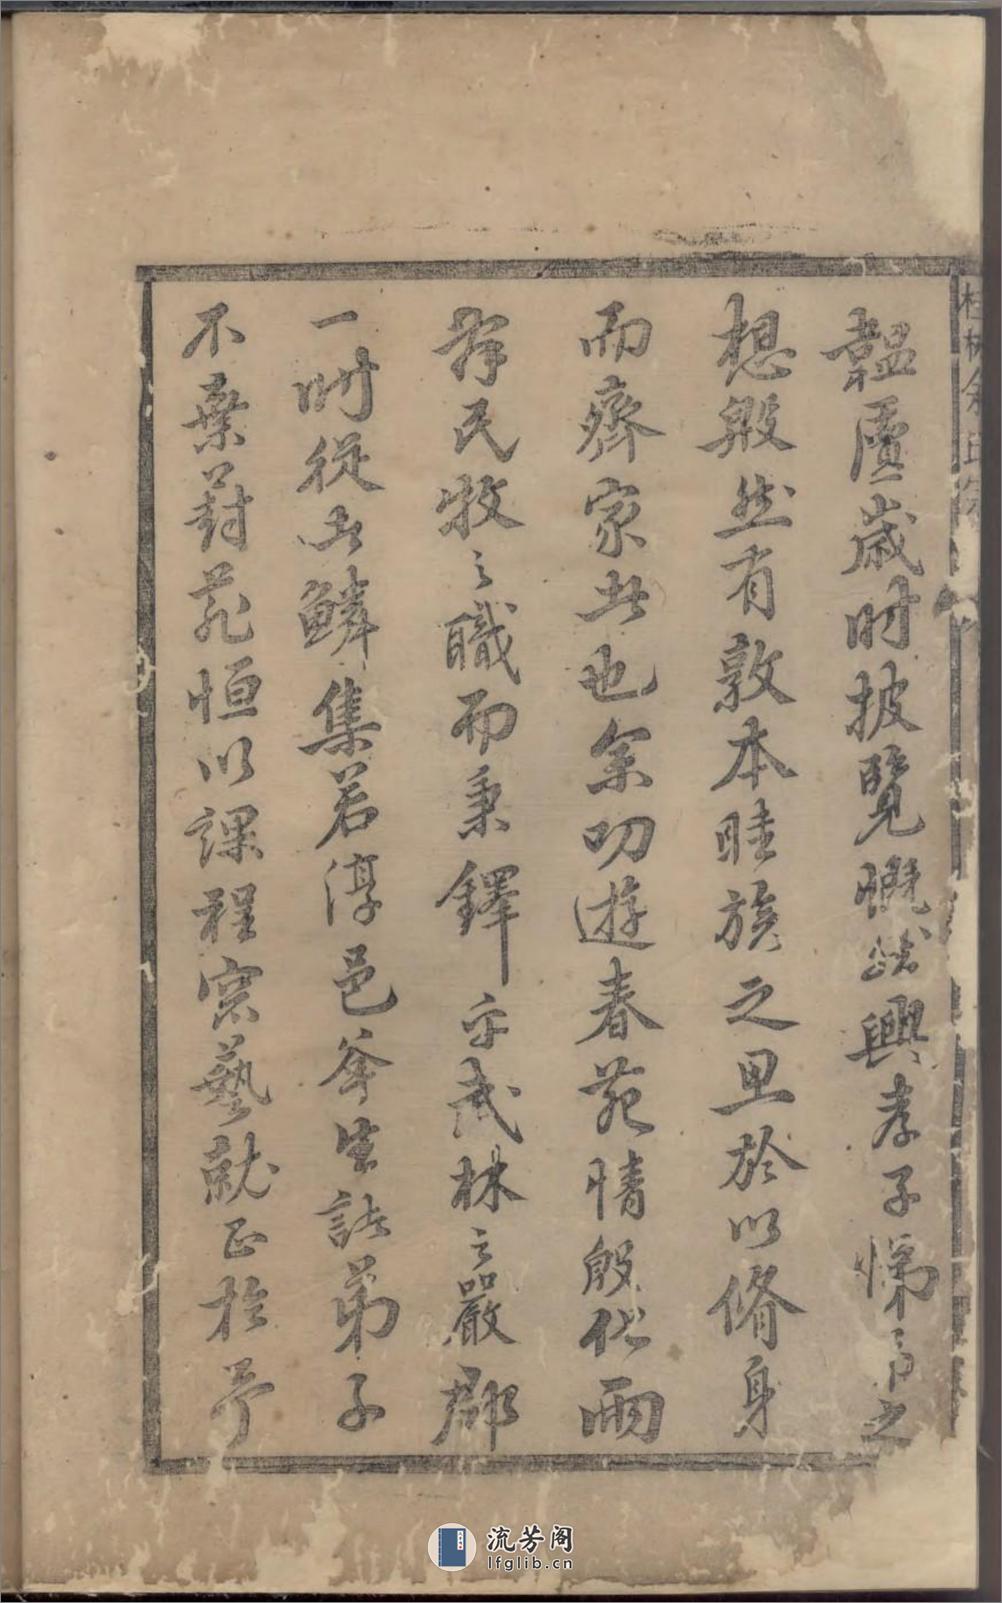 桂林余氏宗
韞匵歲时披覽慨然興孝子悌弟之
想殷然有敦本睦族之思於以脩身
而齊家此也余叨遊春苑情殷化雨
存民牧之職而秉鐸于武林之嚴郡
一时從世鱗集若淳邑斧生諸弟子
不棄葑菲恒以課程窓藝就正於予
流芳阁
lfglib.cn